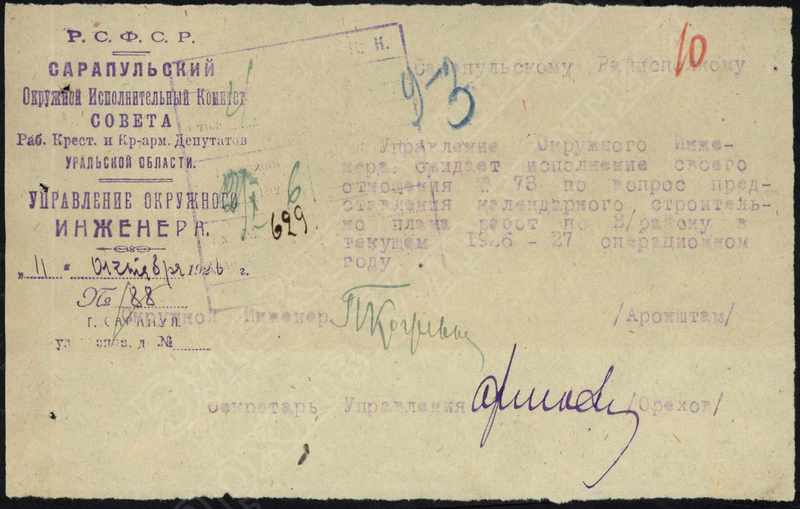 Р. С. Ф. С. Р.
САРАПУЛЬСКИЙ
Окружной Исполнительный Комитет
СОВЕТА
Раб. Крест. и Кр-арм. Депутатов
УРАЛЬСКОЙ ОБЛАСТИ.
УПРАВЛЕНИЕ ОКРУЖНОГО
ИНЖЕНЕРА.
„ 11 " октября 1926 г.
№ 188
Г. САРАПУЛ.
д. №
10
93
6
629.
Сарапульскому Райисполкому
Управление Окружного Инже-
нера ожидает исполнение своего
отношения № 73 по вопрос пред-
ставления календарного строитель-
но плана работ по В/району в
текущем 1926 - 27 операционном
году .
Окружной Инженер /Аронштам/
Секретарь Управления /Орехов/